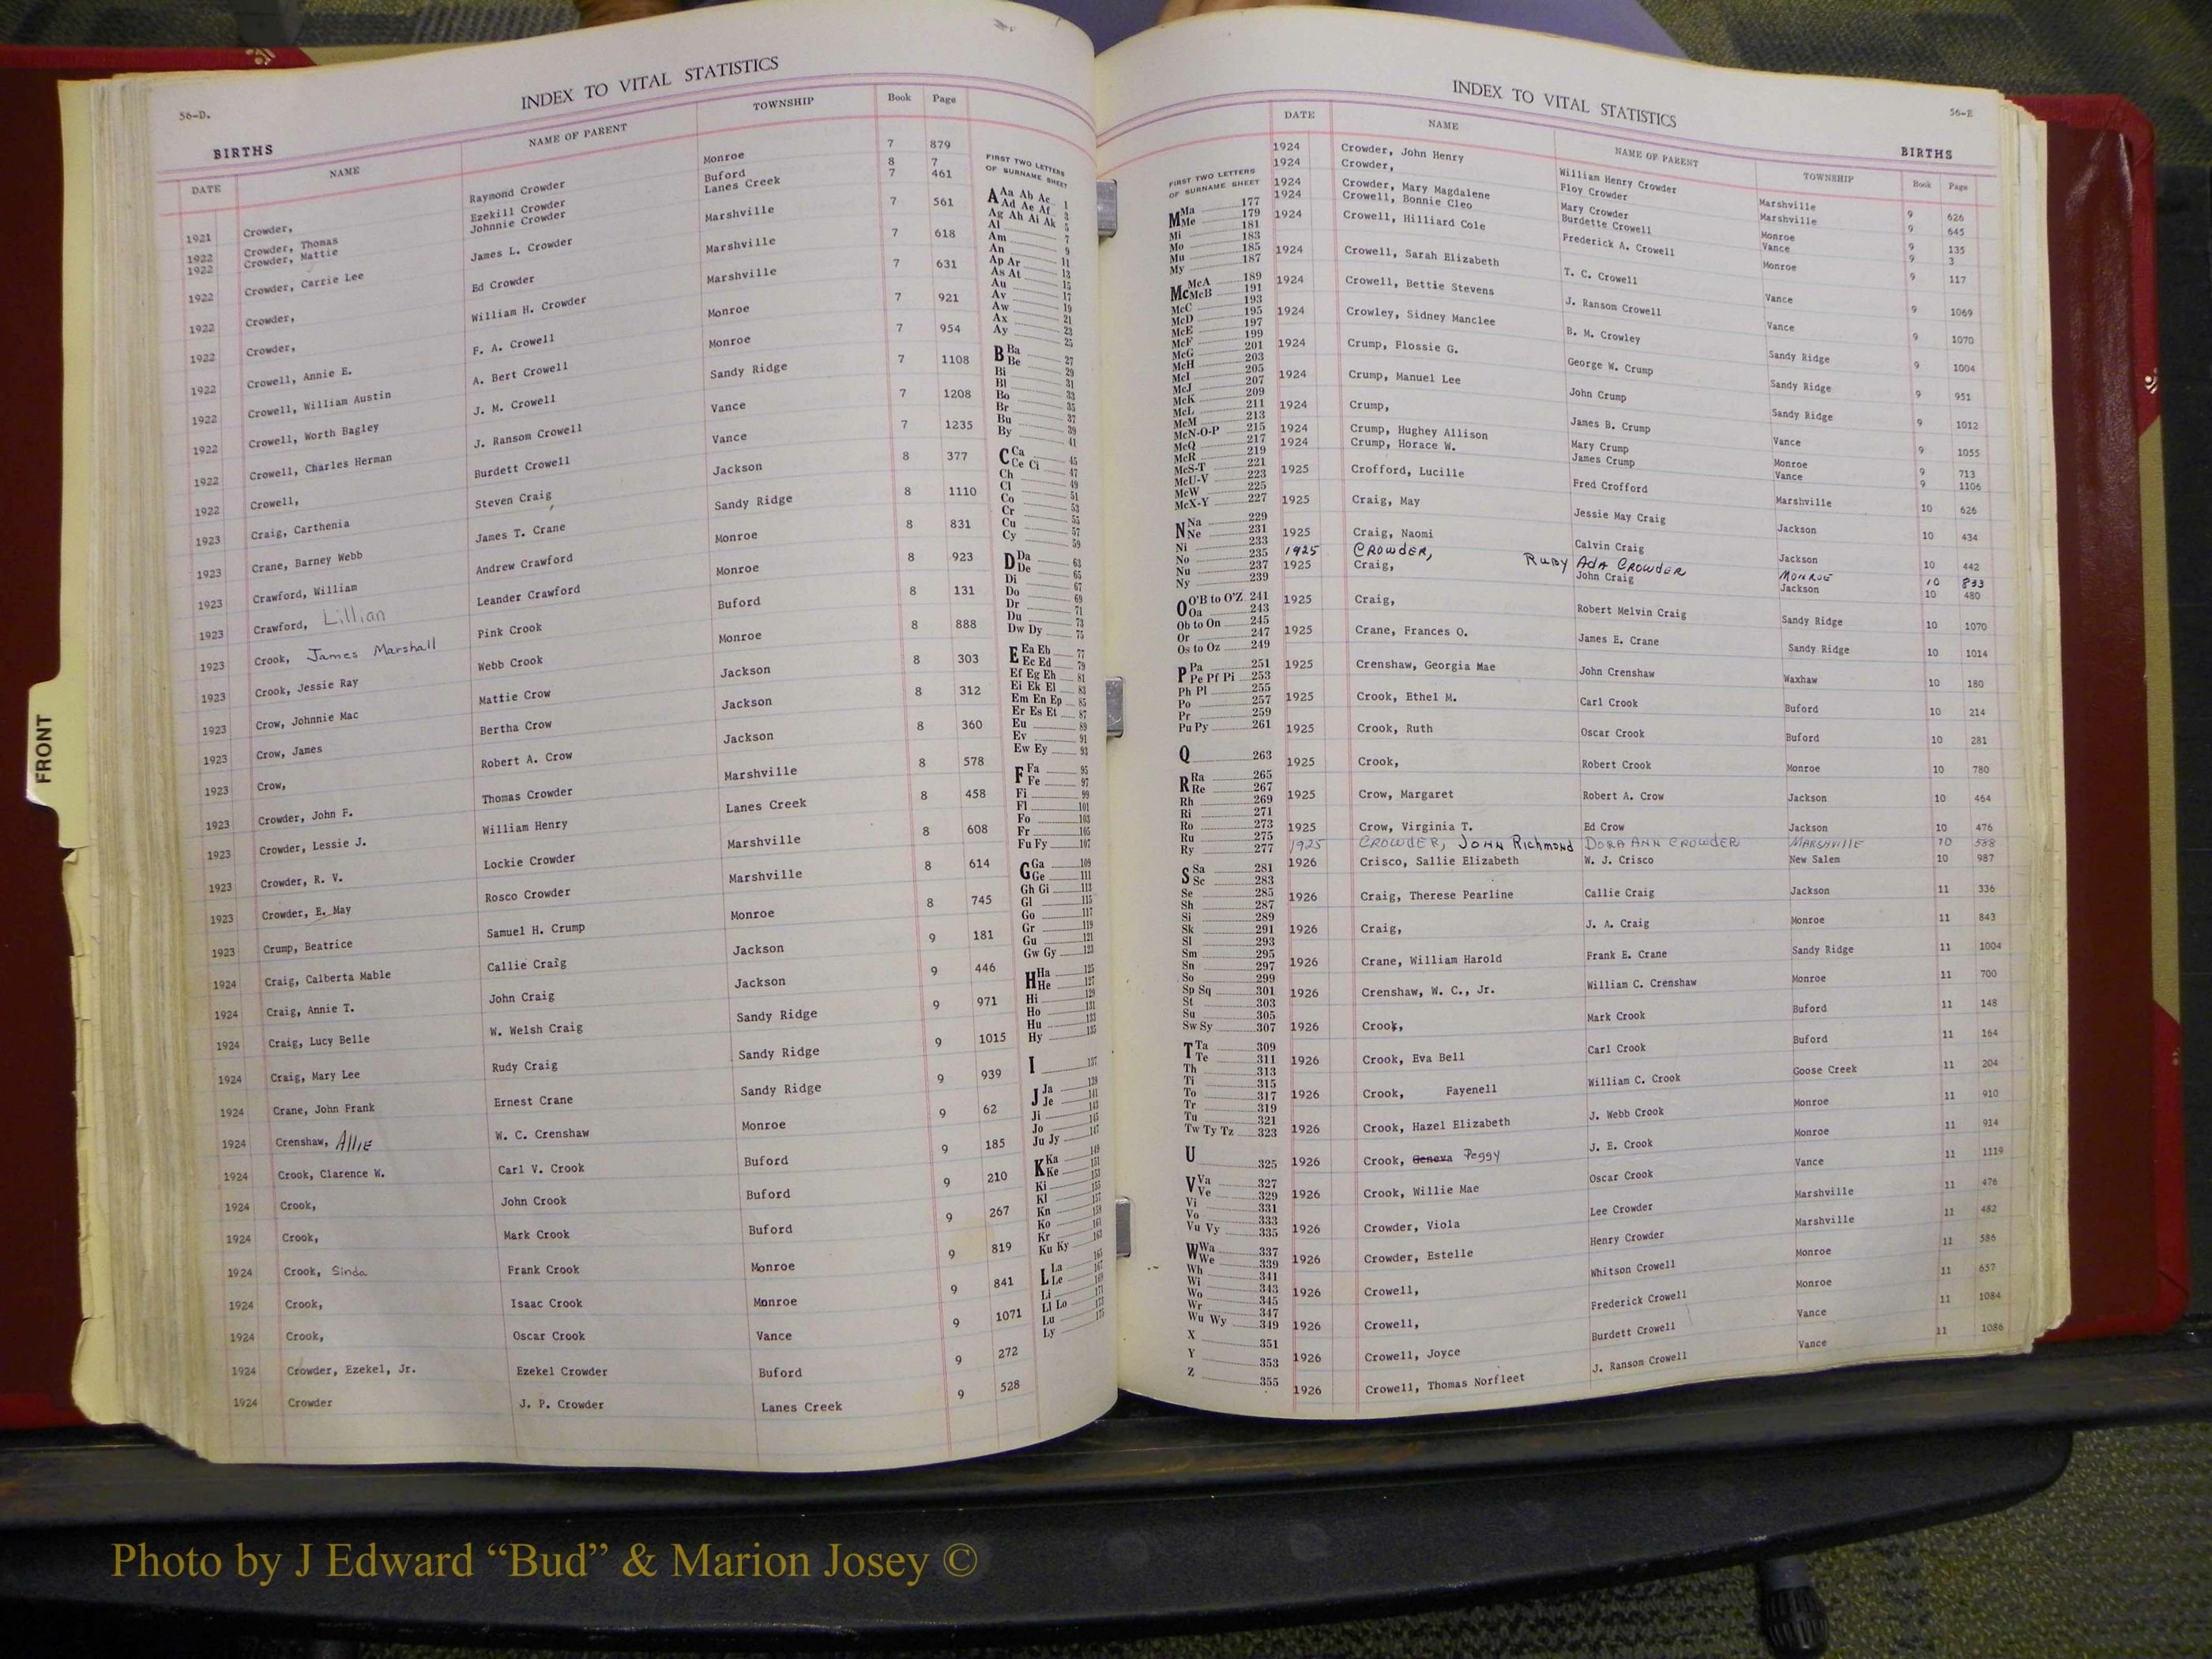 56-D.
INDEX TO VITAL STATISTICS
BIRTHS
DATE NAME NAME OF PARENT TOWNSHIP Book Page
1921 Crowder, Raymond Crowder Monroe 7 879
1922 Crowder, Thomas Ezekill Crowder Buford 8 7
1922 Crowder, Mattie Johnnie Crowder Lanes Creek 7 461
1922 Crowder, Carrie Lee James L. Crowder Marshville 7 561
1922 Crowder, Ed Crowder Marshville 7 618
1922 Crowder, William H. Crowder Marshville 7 631
1922 Crowell, Annie E. F. A. Crowell Monroe 7 921
1922 Crowell, William Austin A. Bert Crowell Monroe 7 954
1922 Crowell, Worth Bagley J. M. Crowell Sandy Ridge 7 1108
1922 Crowell, Charles Herman J. Ransom Crowell Vance 7 1208
1922 Crowell, Burdett Crowell Vance 7 1235
1923 Craig, Carthenia Steven Craig Jackson 8 377
1923 Crane, Barney Webb James T. Crane Sandy Ridge 8 1110
1923 Crawford, William Andrew Crawford Monroe 8 831
1923 Crawford, Lillian Leander Crawford Monroe 8 923
1923 Crook, James Marshall Pink Crook Buford 8 131
1923 Crook, Jessie Ray Webb Crook Monroe 8 888
1923 Crow, Johnnie Mac Mattie Crow Jackson 8 303
1923 Crow, James Bertha Crow Jackson 8 312
1923 Crow, Robert A. Crow Jackson 8 360
1923 Crowder, John F. Thomas Crowder Marshville 8 578
1923 Crowder, Lessie J. William Henry Lanes Creek 8 458
1923 Crowder, R. V. Lockie Crowder Marshville 8 608
1923 Crowder, E. May Rosco Crowder Marshville 8 614
1923 Crump, Beatrice Samuel H. Crump Monroe 8 745
1924 Craig, Calberta Mable Callie Craig Jackson 9 181
1924 Craig, Annie T. John Craig Jackson 9 446
1924 Craig, Lucy Belle W. Welsh Craig Sandy Ridge 9 971
1924 Craig, Mary Lee Rudy Craig Sandy Ridge 9 1015
1924 Crane, John Frank Ernest Crane Sandy Ridge 9 939
1924 Crenshaw, Allie W. C. Crenshaw Monroe 9 62
1924 Crook, Clarence W. Carl V. Crook Buford 9 185
1924 Crook, John Crook Buford 9 210
1924 Crook, Mark Crook Buford 9 267
1924 Crook, Sinda Frank Crook Monroe 9 819
1924 Crook, Isaac Crook Monroe 9 841
1924 Crook, Oscar Crook Vance 9 1071
1924 Crowder, Ezekel, Jr. Ezekel Crowder Buford 9 272
1924 Crowder J. P. Crowder Lanes Creek 9 528
FIRST TWO LETTERS
OF SURNAME SHEET
A Aa Ab Ac 1
Ad Ae Af 3
Ag Ah Ai Ak 5
Al 7
Am 9
An 11
Ap Ar 13
As At 15
Au 17
Av 19
Aw 21
Ax 23
Ay 25
B Ba 27
Be 29
Bi 31
Bl 33
Bo 35
Br 37
Bu 39
By 41
C Ca 45
Ce Ci 47
Ch 49
Cl 51
Co 53
Cr 55
Cu 57
Cy 59
D Da 63
De 65
Di 67
Do 69
Dr 71
Du 73
Dw Dy 75
E Ea Eb 77
Ec Ed 79
Ef Eg Eh 81
Ei Ek El 83
Em En Ep 85
Er Es Et 87
Eu 89
Ev 91
Ew Ey 93
F Fa 95
Fe 97
Fi 99
Fl 101
Fo 103
Fr 105
Fu Fy 107
G Ga 109
Ge 111
Gh Gi 113
Gl 115
Go 117
Gr 119
Gu 121
Gw Gy 123
H Ha 125
He 127
Hi 129
Ho 131
Hu 133
Hy 135
I 137
J Ja 139
Je 141
Ji 143
Jo 145
Ju Jy 147
K Ka 149
Ke 151
Ki 153
Kl 155
Kn 157
Ko 159
Kr 161
Ku Ky 163
L La 165
Le 167
Li 169
Ll Lo 171
Lu 173
Ly 175
INDEX TO VITAL STATISTICS
56-E
BIRTHS
DATE NAME NAME OF PARENT TOWNSHIP Book Page
1924 Crowder, John Henry William Henry Crowder Marshville 9 626
1924 Crowder, Floy Crowder Marshville 9 645
1924 Crowder, Mary Magdalene Mary Crowder Monroe 9 135
1924 Crowell, Bonnie Cleo Burdette Crowell Vance 9 3
1924 Crowell, Hilliard Cole Frederick A. Crowell Monroe 9 117
1924 Crowell, Sarah Elizabeth T. C. Crowell Vance 9 1069
1924 Crowell, Bettie Stevens J. Ransom Crowell Vance 9 1070
1924 Crowley, Sidney Manclee B. M. Crowley Sandy Ridge 9 1004
1924 Crump, Flossie G. George W. Crump Sandy Ridge 9 951
1924 Crump, Manuel Lee John Crump Sandy Ridge 9 1012
1924 Crump, James B. Crump Vance 9 1055
1924 Crump, Hughey Allison Mary Crump Monroe 9 713
1924 Crump, Horace W. James Crump Vance 9 1106
1925 Crofford, Lucille Fred Crofford Marshville 10 626
1925 Craig, May Jessie May Craig Jackson 10 434
1925 Craig, Naomi Calvin Craig Jackson 10 442
1925 CROWDER, RUBY ADA CROWDER MONROE 10 833
1925 Craig, John Craig Jackson 10 480
1925 Craig, Robert Melvin Craig Sandy Ridge 10 1070
1925 Crane, Frances O. James E. Crane Sandy Ridge 10 1014
1925 Crenshaw, Georgia Mae John Crenshaw Waxhaw 10 180
1925 Crook, Ethel M. Carl Crook Buford 10 214
1925 Crook, Ruth Oscar Crook Buford 10 281
1925 Crook, Robert Crook Monroe 10 780
1925 Crow, Margaret Robert A. Crow Jackson 10 464
1925 Crow, Virginia T. Ed Crow Jackson 10 476
1925 CROWDER, JOHN Richmond DORA ANN CROWDER MARSHVILLE 10 588
1926 Crisco, Sallie Elizabeth W. J. Crisco New Salem 10 987
1926 Craig, Therese Pearline Callie Craig Jackson 11 336
1926 Craig, J. A. Craig Monroe 11 843
1926 Crane, William Harold Frank E. Crane Sandy Ridge 11 1004
1926 Crenshaw, W. C., Jr. William C. Crenshaw Monroe 11 700
1926 Crook, Mark Crook Buford 11 148
1926 Crook, Eva Bell Carl Crook Buford 11 164
1926 Crook, Fayenell William C. Crook Goose Creek 11 204
1926 Crook, Hazel Elizabeth J. Webb Crook Monroe 11 910
1926 Crook, Geneva Peggy J. E. Crook Monroe 11 914
1926 Crook, Willie Mae Oscar Crook Vance 11 1119
1926 Crowder, Viola Lee Crowder Marshville 11 476
1926 Crowder, Estelle Henry Crowder Marshville 11 482
1926 Crowell, Whitson Crowell Monroe 11 586
1926 Crowell, Frederick Crowell Monroe 11 657
1926 Crowell, Joyce Burdett Crowell Vance 11 1084
1926 Crowell, Thomas Norfleet J. Ransom Crowell Vance 11 1086
FIRST TWO LETTERS
OF SURNAME SHEET
M Ma 177
Me 179
Mi 181
Mo 183
Mu 185
My 187
Mc McA 189
McB 191
McC 193
McD 195
McE 197
McF 199
McG 201
McH 203
McI 205
McJ 207
McK 209
McL 211
McM 213
McN-O-P 215
McQ 217
McR 219
McS-T 221
McU-V 223
McW 225
McX-Y 227
N Na 229
Ne 231
Ni 233
No 235
Nu 237
Ny 239
O O'B to O'Z 241
Oa 243
Ob to On 245
Or 247
Os to Oz 249
P Pa 251
Pe Pf Pi 253
Ph Pl 255
Po 257
Pr 259
Pu Py 261
Q 263
R Ra 265
Re 267
Rh 269
Ri 271
Ro 273
Ru 275
Ry 277
S Sa 281
Sc 283
Se 285
Sh 287
Si 289
Sk 291
Sl 293
Sm 295
Sn 297
So 299
Sp Sq 301
St 303
Su 305
Sw Sy 307
T Ta 309
Te 311
Th 313
Ti 315
To 317
Tr 319
Tu 321
Tw Ty Tz 323
U 325
V Va 327
Ve 329
Vi 331
Vo 333
Vu Vy 335
W Wa 337
We 339
Wh 341
Wi 343
Wo 345
Wr 347
Wu Wy 349
X 351
Y 353
Z 355
FRONT
Photo by J Edward “Bud” & Marion Josey ©